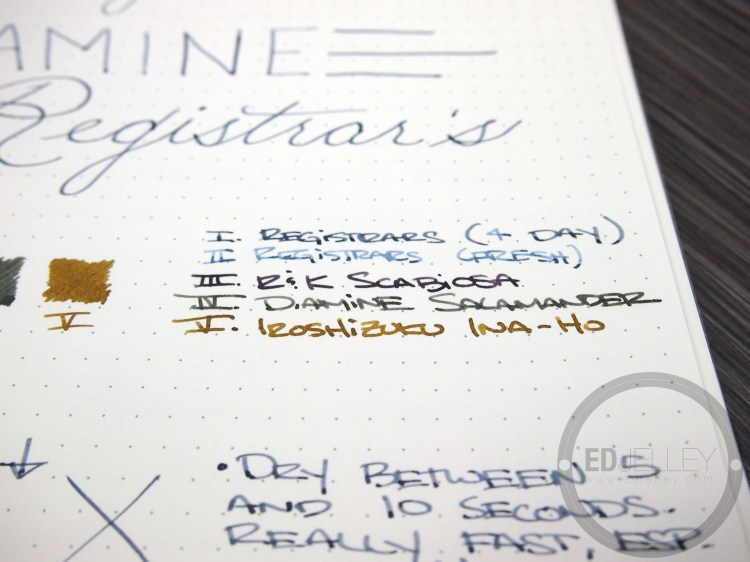 AMINE
Registrar's
I. REGISTRARS (4 DAY)
II REGISTRARS (FRESH)
III. R&K SCABIOSA
IV. DIAMINE SALAMANDER
V
V. IROSHIZUKU INA-HO
• DRY BETWEEN 5
AND 10 SECONDS.
REALLY FAST, ESP.
ED JELLEY
www.edjelley.com